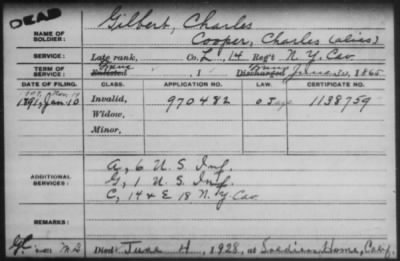 DEAD
NAME OF SOLDIER: Gilbert, Charles
Cooper, Charles (alias)
SERVICE: Late rank, Co. L, 14 Reg't N. Y. Cav.
TERM OF SERVICE: Enlisted , 1 Discharged June 20, 1865
DATE OF FILING. CLASS. APPLICATION NO. LAW. CERTIFICATE NO.
1891, Jan. 10 Invalid, 970482 1138759
Widow,
Minor,
ADDITIONAL SERVICES: A, 6 U. S. Inf.
G, 1 U. S. Inf.
C, 14 & E 18 N. Y. Cav.
REMARKS:
Died June 4, 1928, at Soldiers Home, Calif.